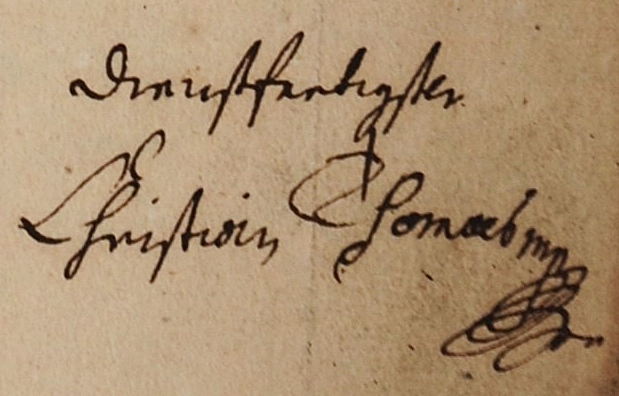 Dienstfertigster
Christian Thomas